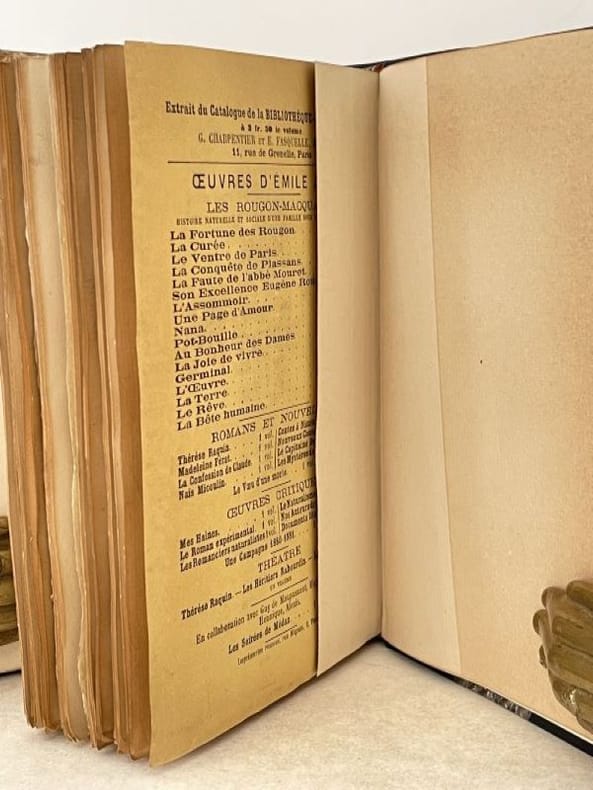 Extrait du Catalogue de la BIBLIOTHÈQUE
à 3 fr. 50 le volume
G. CHARPENTIER ET E. FASQUELLE,
11, rue de Grenelle, Paris
ŒUVRES D'ÉMILE
LES ROUGON-MACQUA
HISTOIRE NATURELLE ET SOCIALE D'UNE FAMILLE
La Fortune des Rougon
La Curée
Le Ventre de Paris
La Conquête de Plassans
La Faute de l'abbé Mouret
Son Excellence Eugène Rou
L'Assommoir
Une Page d'Amour
Nana
Pot-Bouille
Au Bonheur des Dames
La Joie de vivre
Germinal
L'Œuvre
La Terre
Le Rêve
La Bête humaine
ROMANS ET NOUVEL
Thérèse Raquin. 1 vol. Contes à Ninon
Madeleine Férat. 1 vol. Nouveaux Con
La Confession de Claude. 1 vol. Le Capitaine
Naïs Micoulin. 1 vol. Les Mystères
Le Vœu d'une morte. 1 vol.
ŒUVRES CRITIQUE
Mes Haines. 1 vol. Le Naturalisme
Le Roman expérimental. 1 vol. Nos Auteurs
Les Romanciers naturalistes 1 vol. Documents
Une Campagne 1880-1881.
THÉATRE
Thérèse Raquin. — Les Héritiers Rabourdin. —
UN VOLUME
En collaboration avec Guy de Maupassant,
Hennique, Alexis.
Les Soirées de Médan